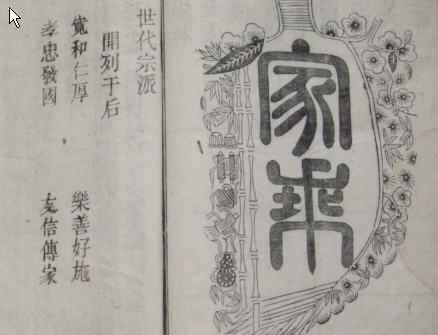 家乘
世代宗派
開列于后
寬和仁厚 樂善好施
孝忠發國 友信傳家